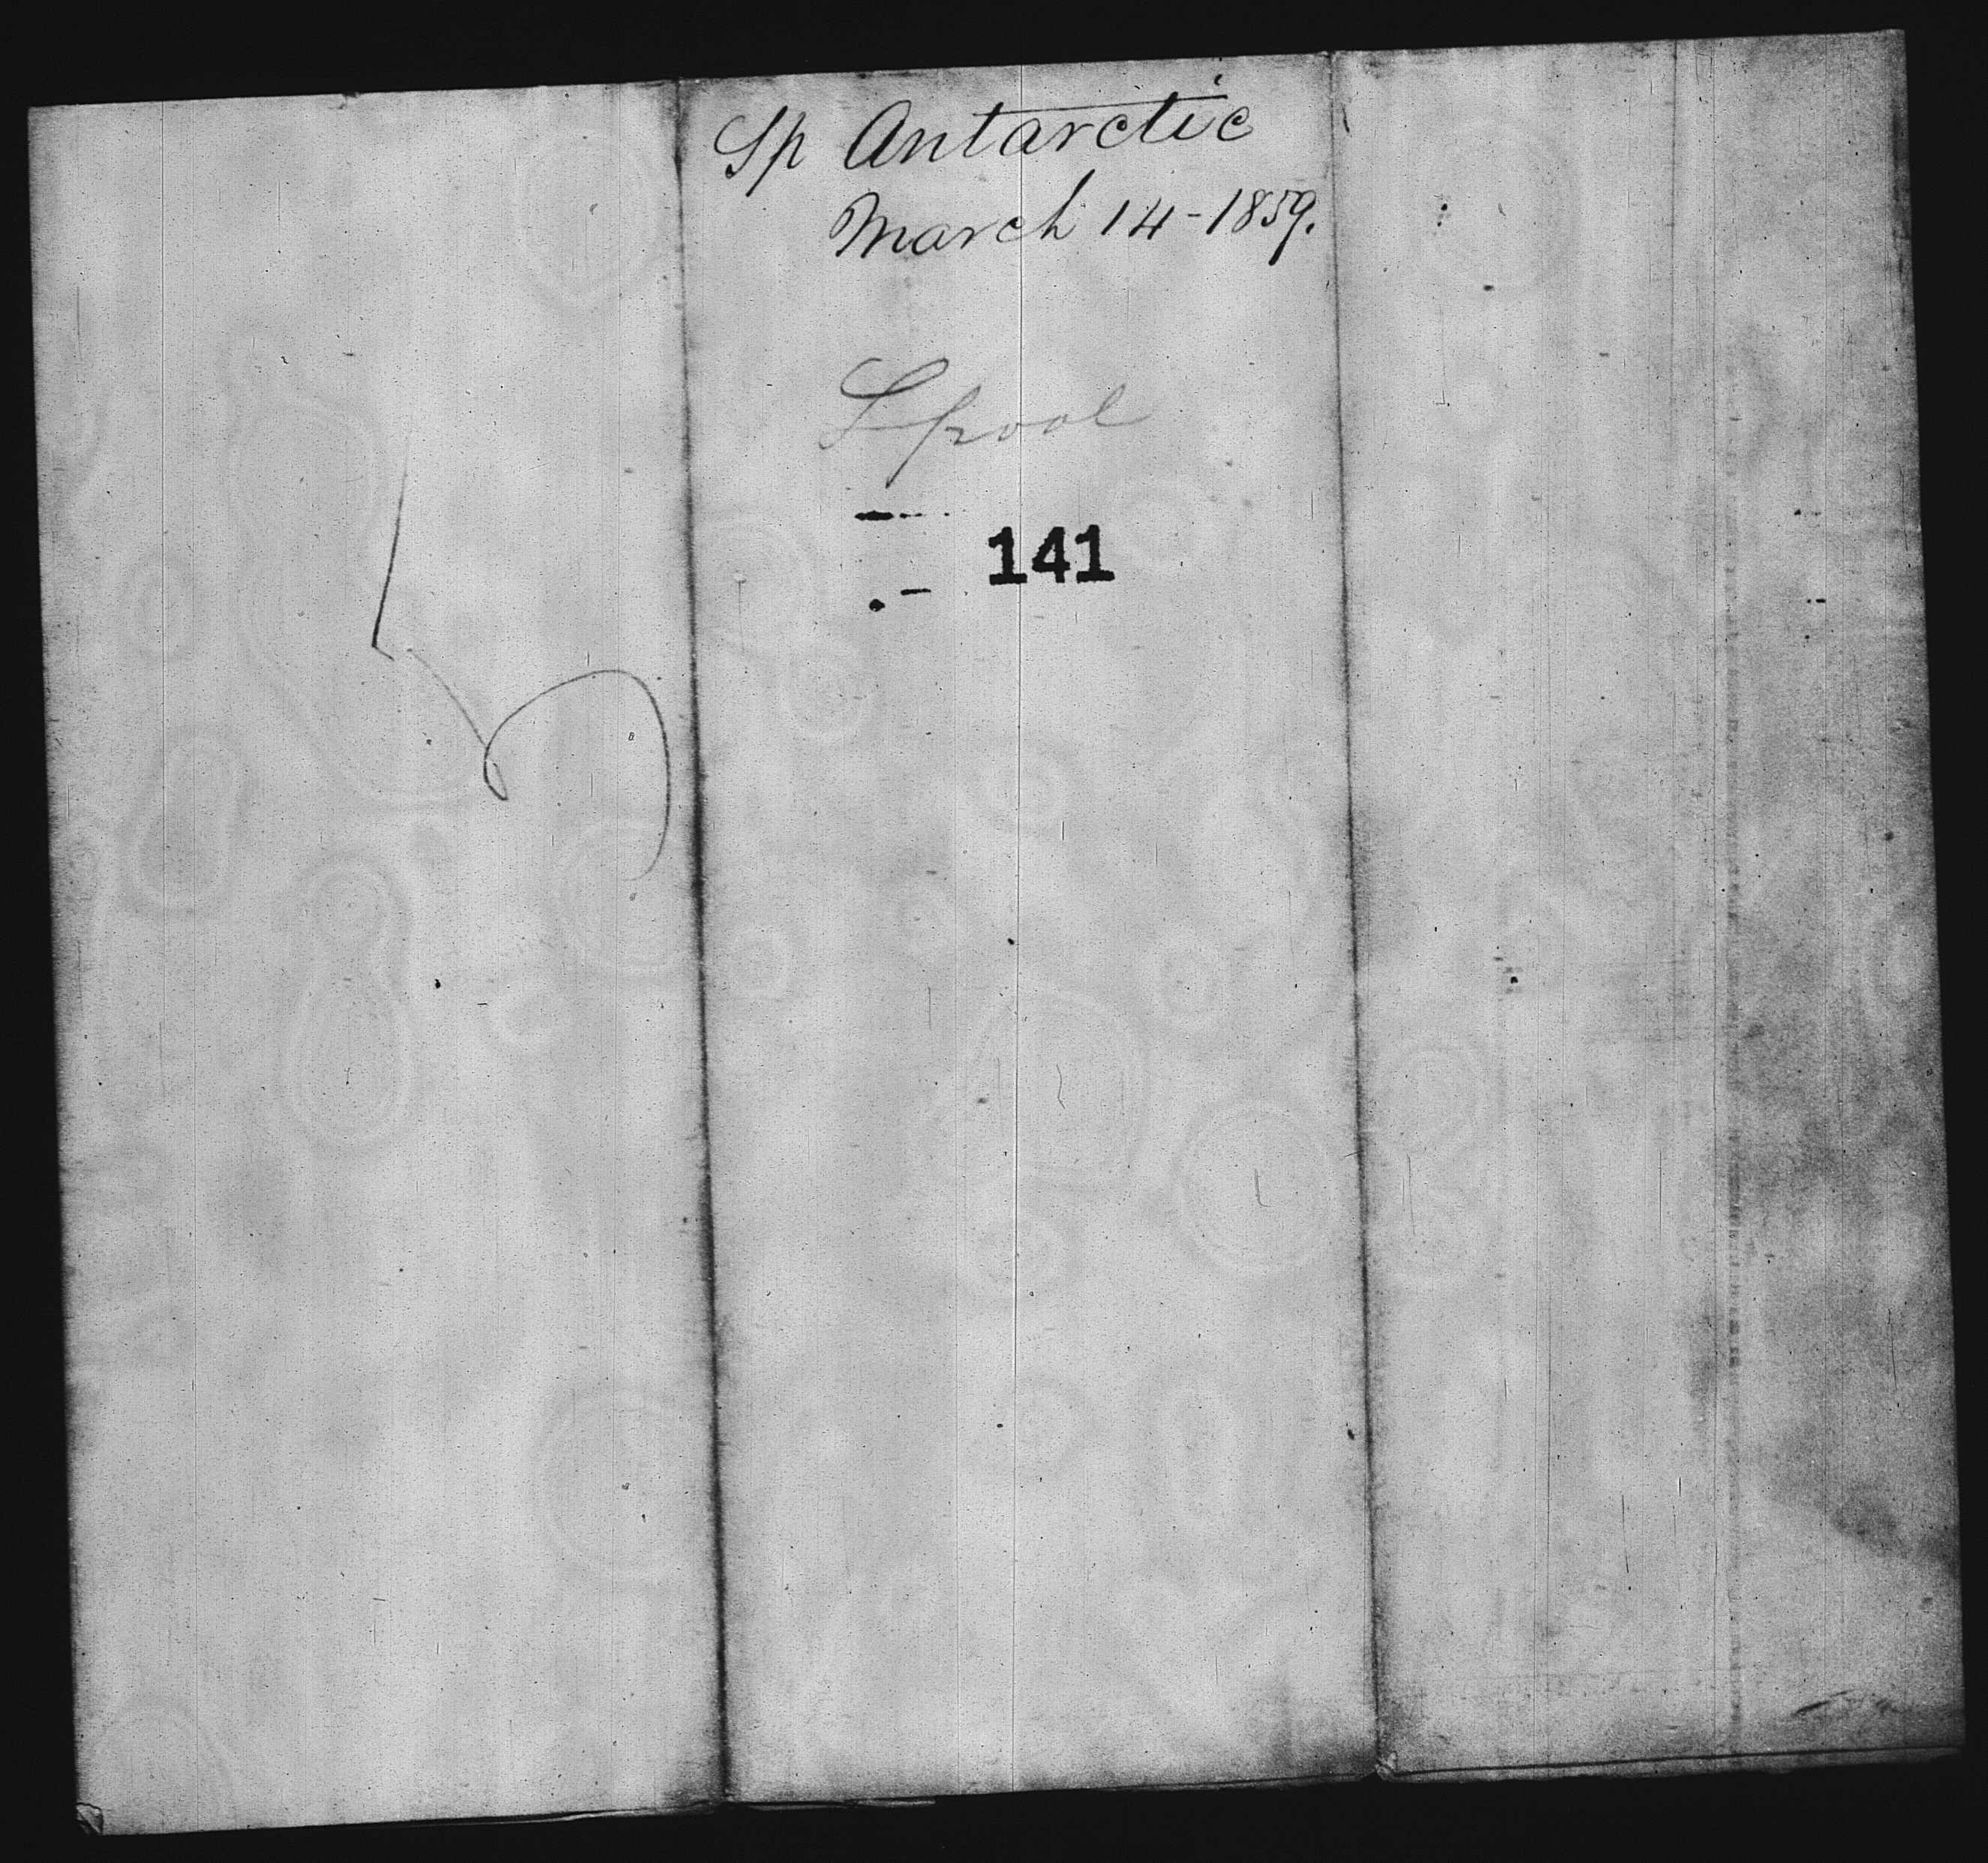 Sp Antarctic
March 14-1859.
Lpool
141